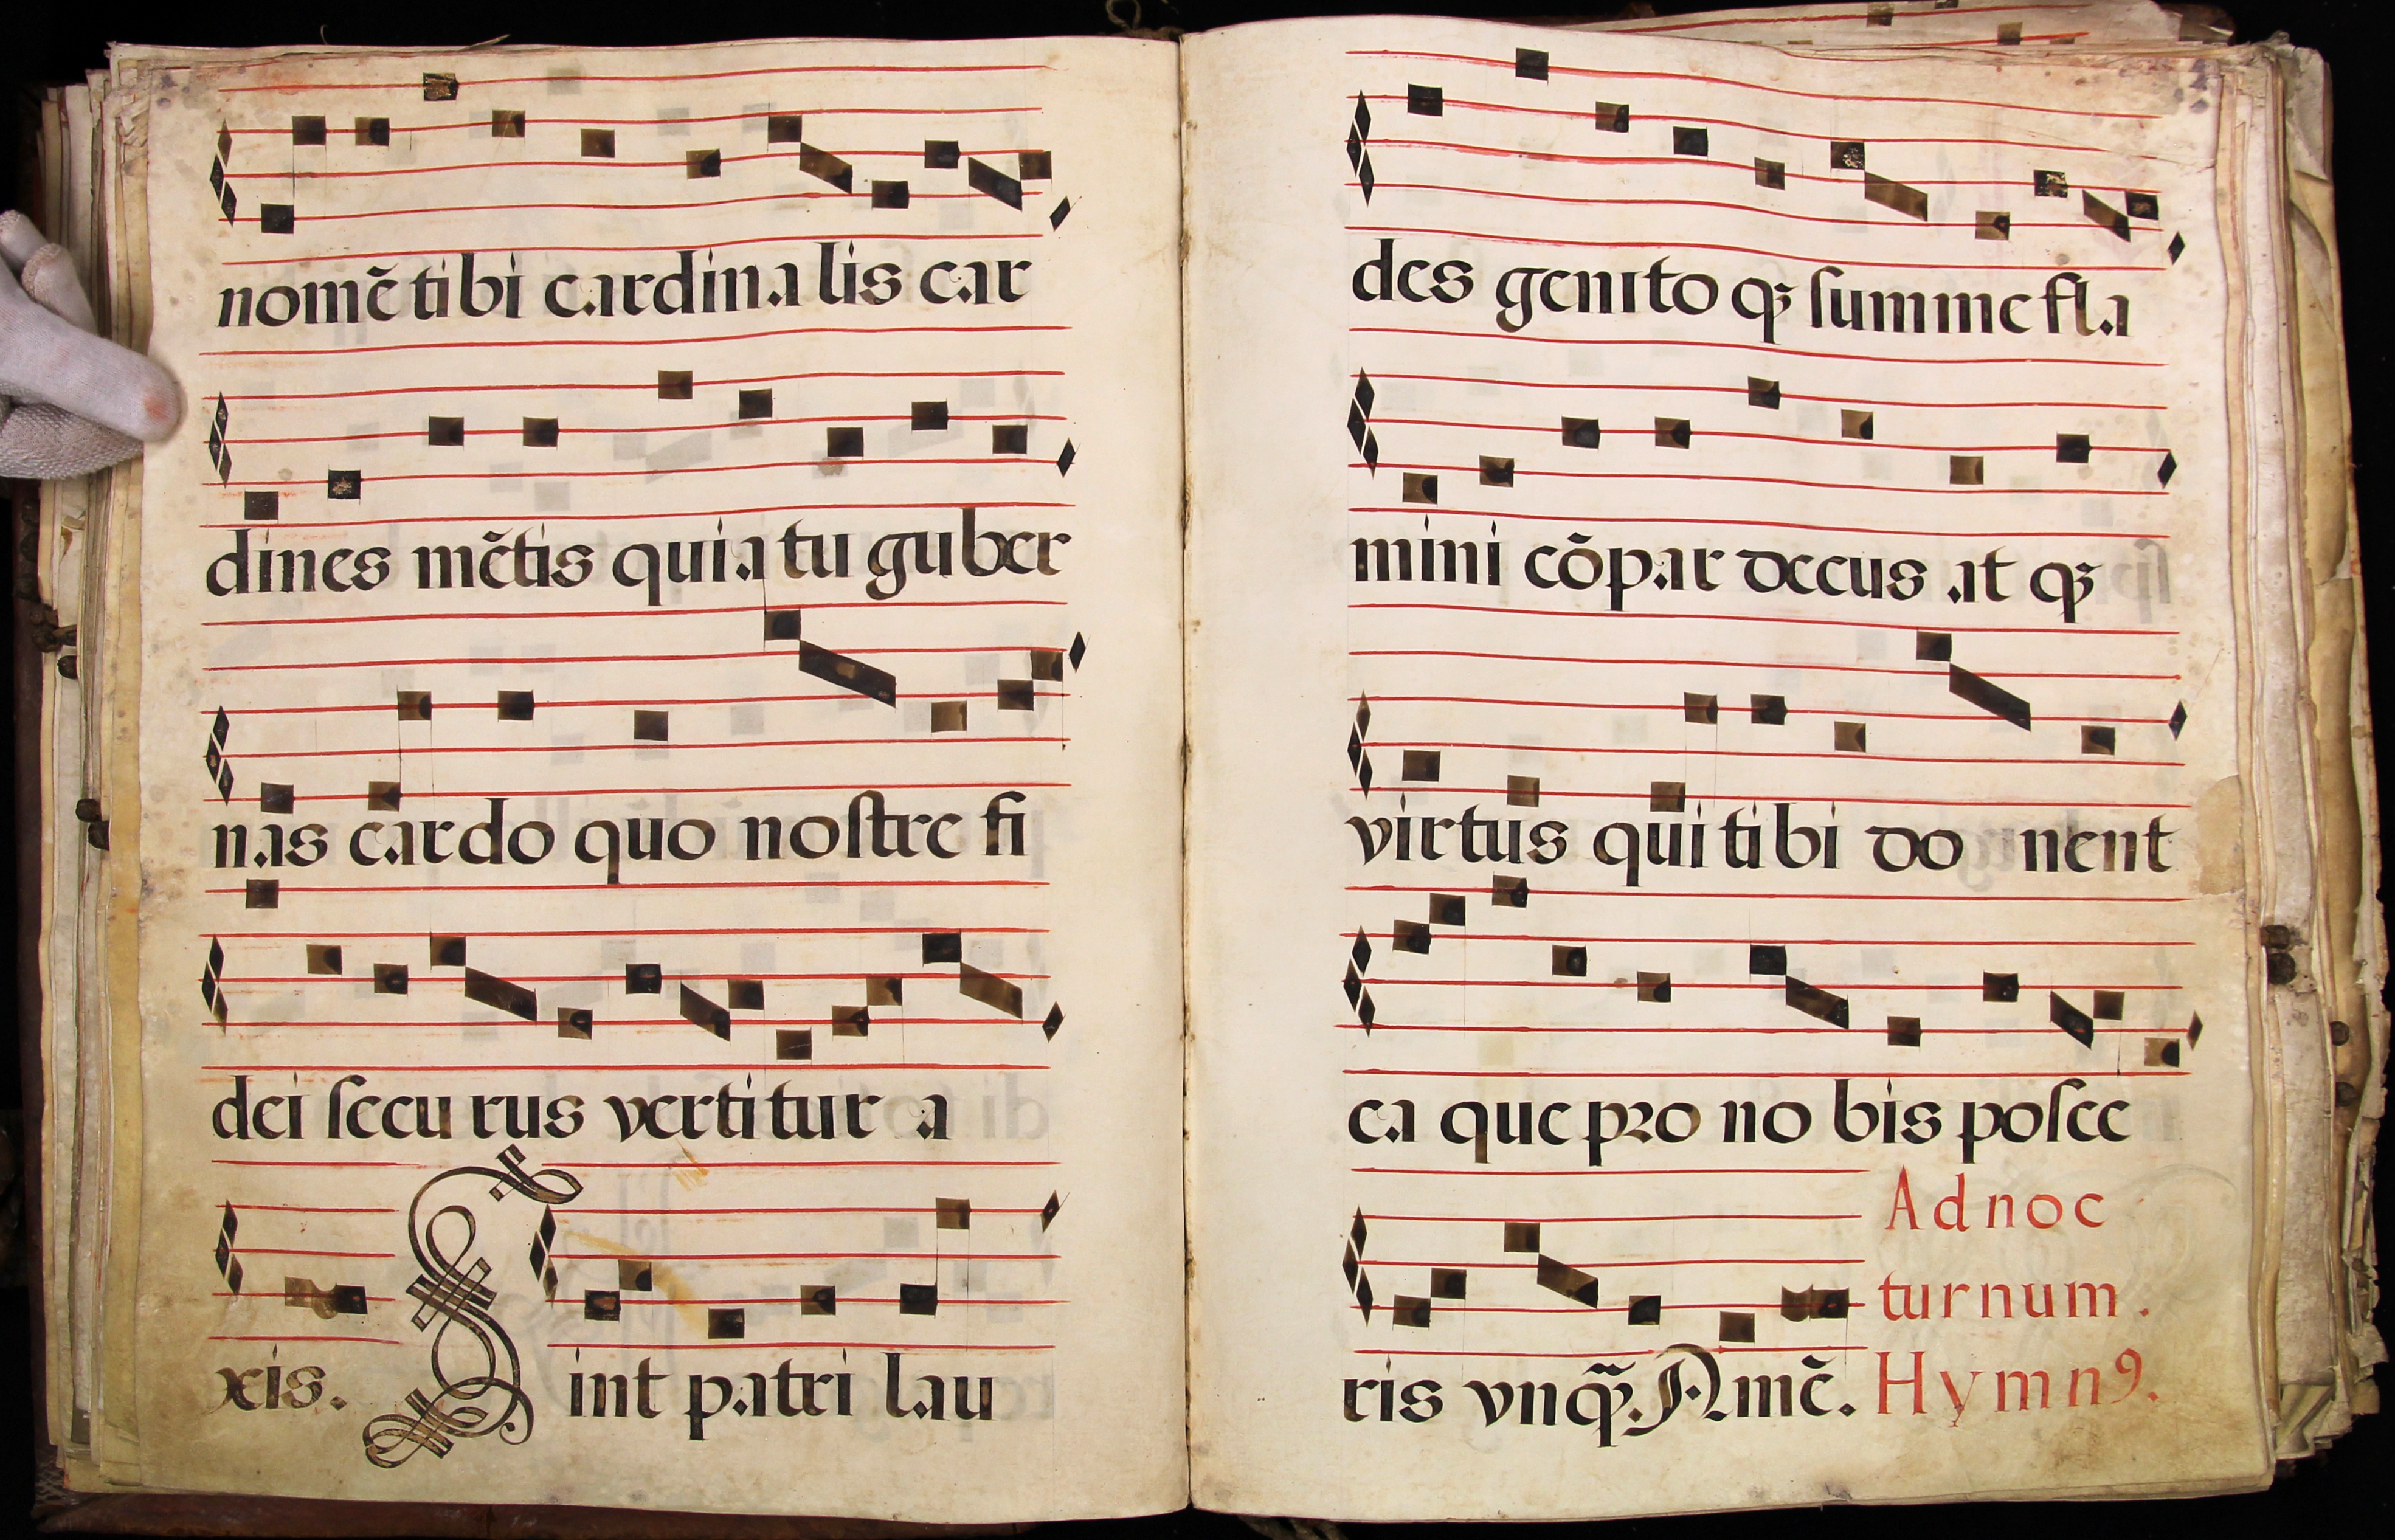 nomē tibi cardina lis car
dines mētis quia tu guber
nas cardo quo noſtre fi
dei ſecu rus vertitur a
xis. Sint patri lau
des genito qꝫ ſumme fla
mini cōpar decus at qꝫ
virtus qui tibi do nent
ea que pro no bis poſce
ris vnqꝫ̄. Amē. Ad noc
turnum.
Hymnꝰ.